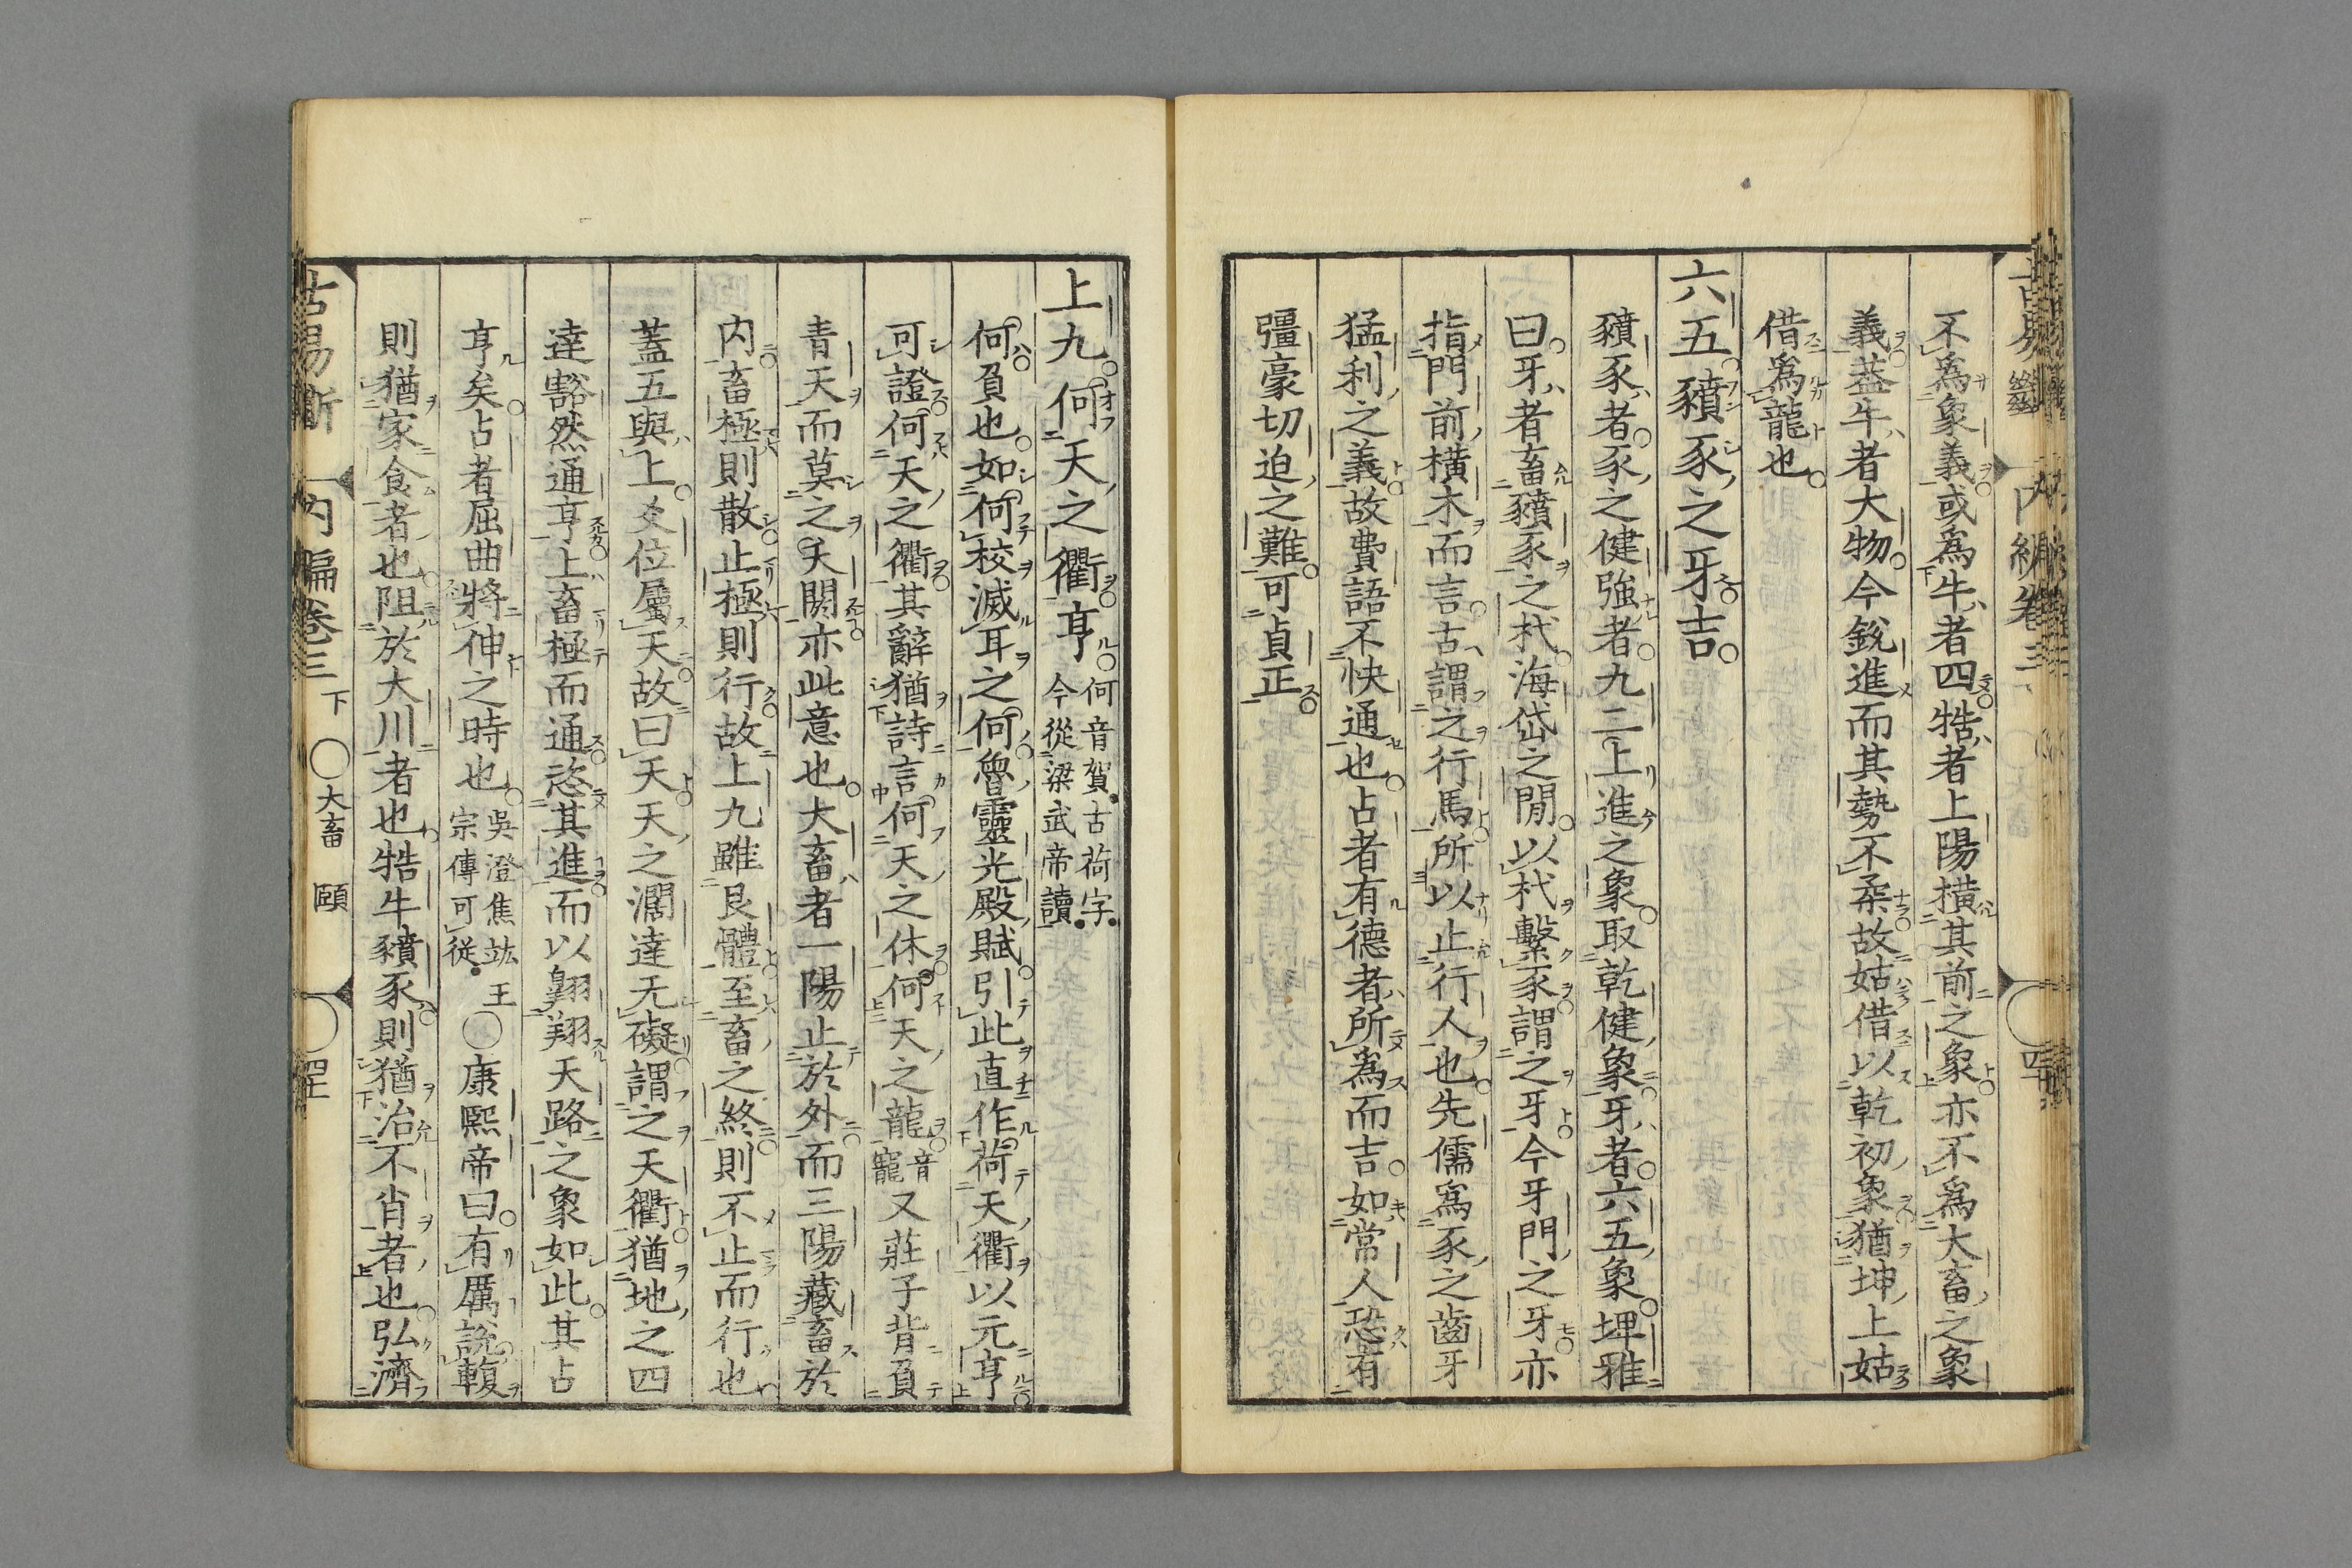 不爲象義或爲牛者四牿者上陽橫其前之象亦不爲大畜之象
義葢牛者大物今銳進而其勢不柔故姑借以乾初象猶坤上姑
借爲龍也
六五豶豕之牙吉
豶豕者豕之健強者九二上進之象取乾健象牙者六五象埤雅
曰牙者畜豶豕之杙海岱之閒以杙繫豕謂之牙今牙門之牙亦
指門前橫木而言古謂之行馬所以止行人也先儒爲豕之齒牙
猛利之義故費語不快通也占者有德者所爲而吉如常人恐有
彊豪切迫之難可貞正
上九何天之衢亨 何音賀古荷字
今從梁武帝讀
何負也如何校滅耳之何魯靈光殿賦引此直作荷天衢以元亨
可證何天之衢其辭猶詩言何天之休何天之龍 音寵 又莊子背負
青天而莫之夭閼亦此意也大畜者一陽止於外而三陽藏畜於
内畜極則散止極則行故上九雖艮體至畜之終則不止而行也
蓋五與上爻位屬天故曰天天之濶達无礙謂之天衢猶地之四
達豁然通亨上畜極而通恣其進而以翺翔天路之象如此其占
亨矣占者屈曲將伸之時也 吳澄焦竑王
宗傳可從 ○康熙帝曰有厲說輹
則猶家食者也阻於大川者也牿牛豶豕則猶治不肖者也弘濟
古易斷 内編卷三 下 ○大畜 頤